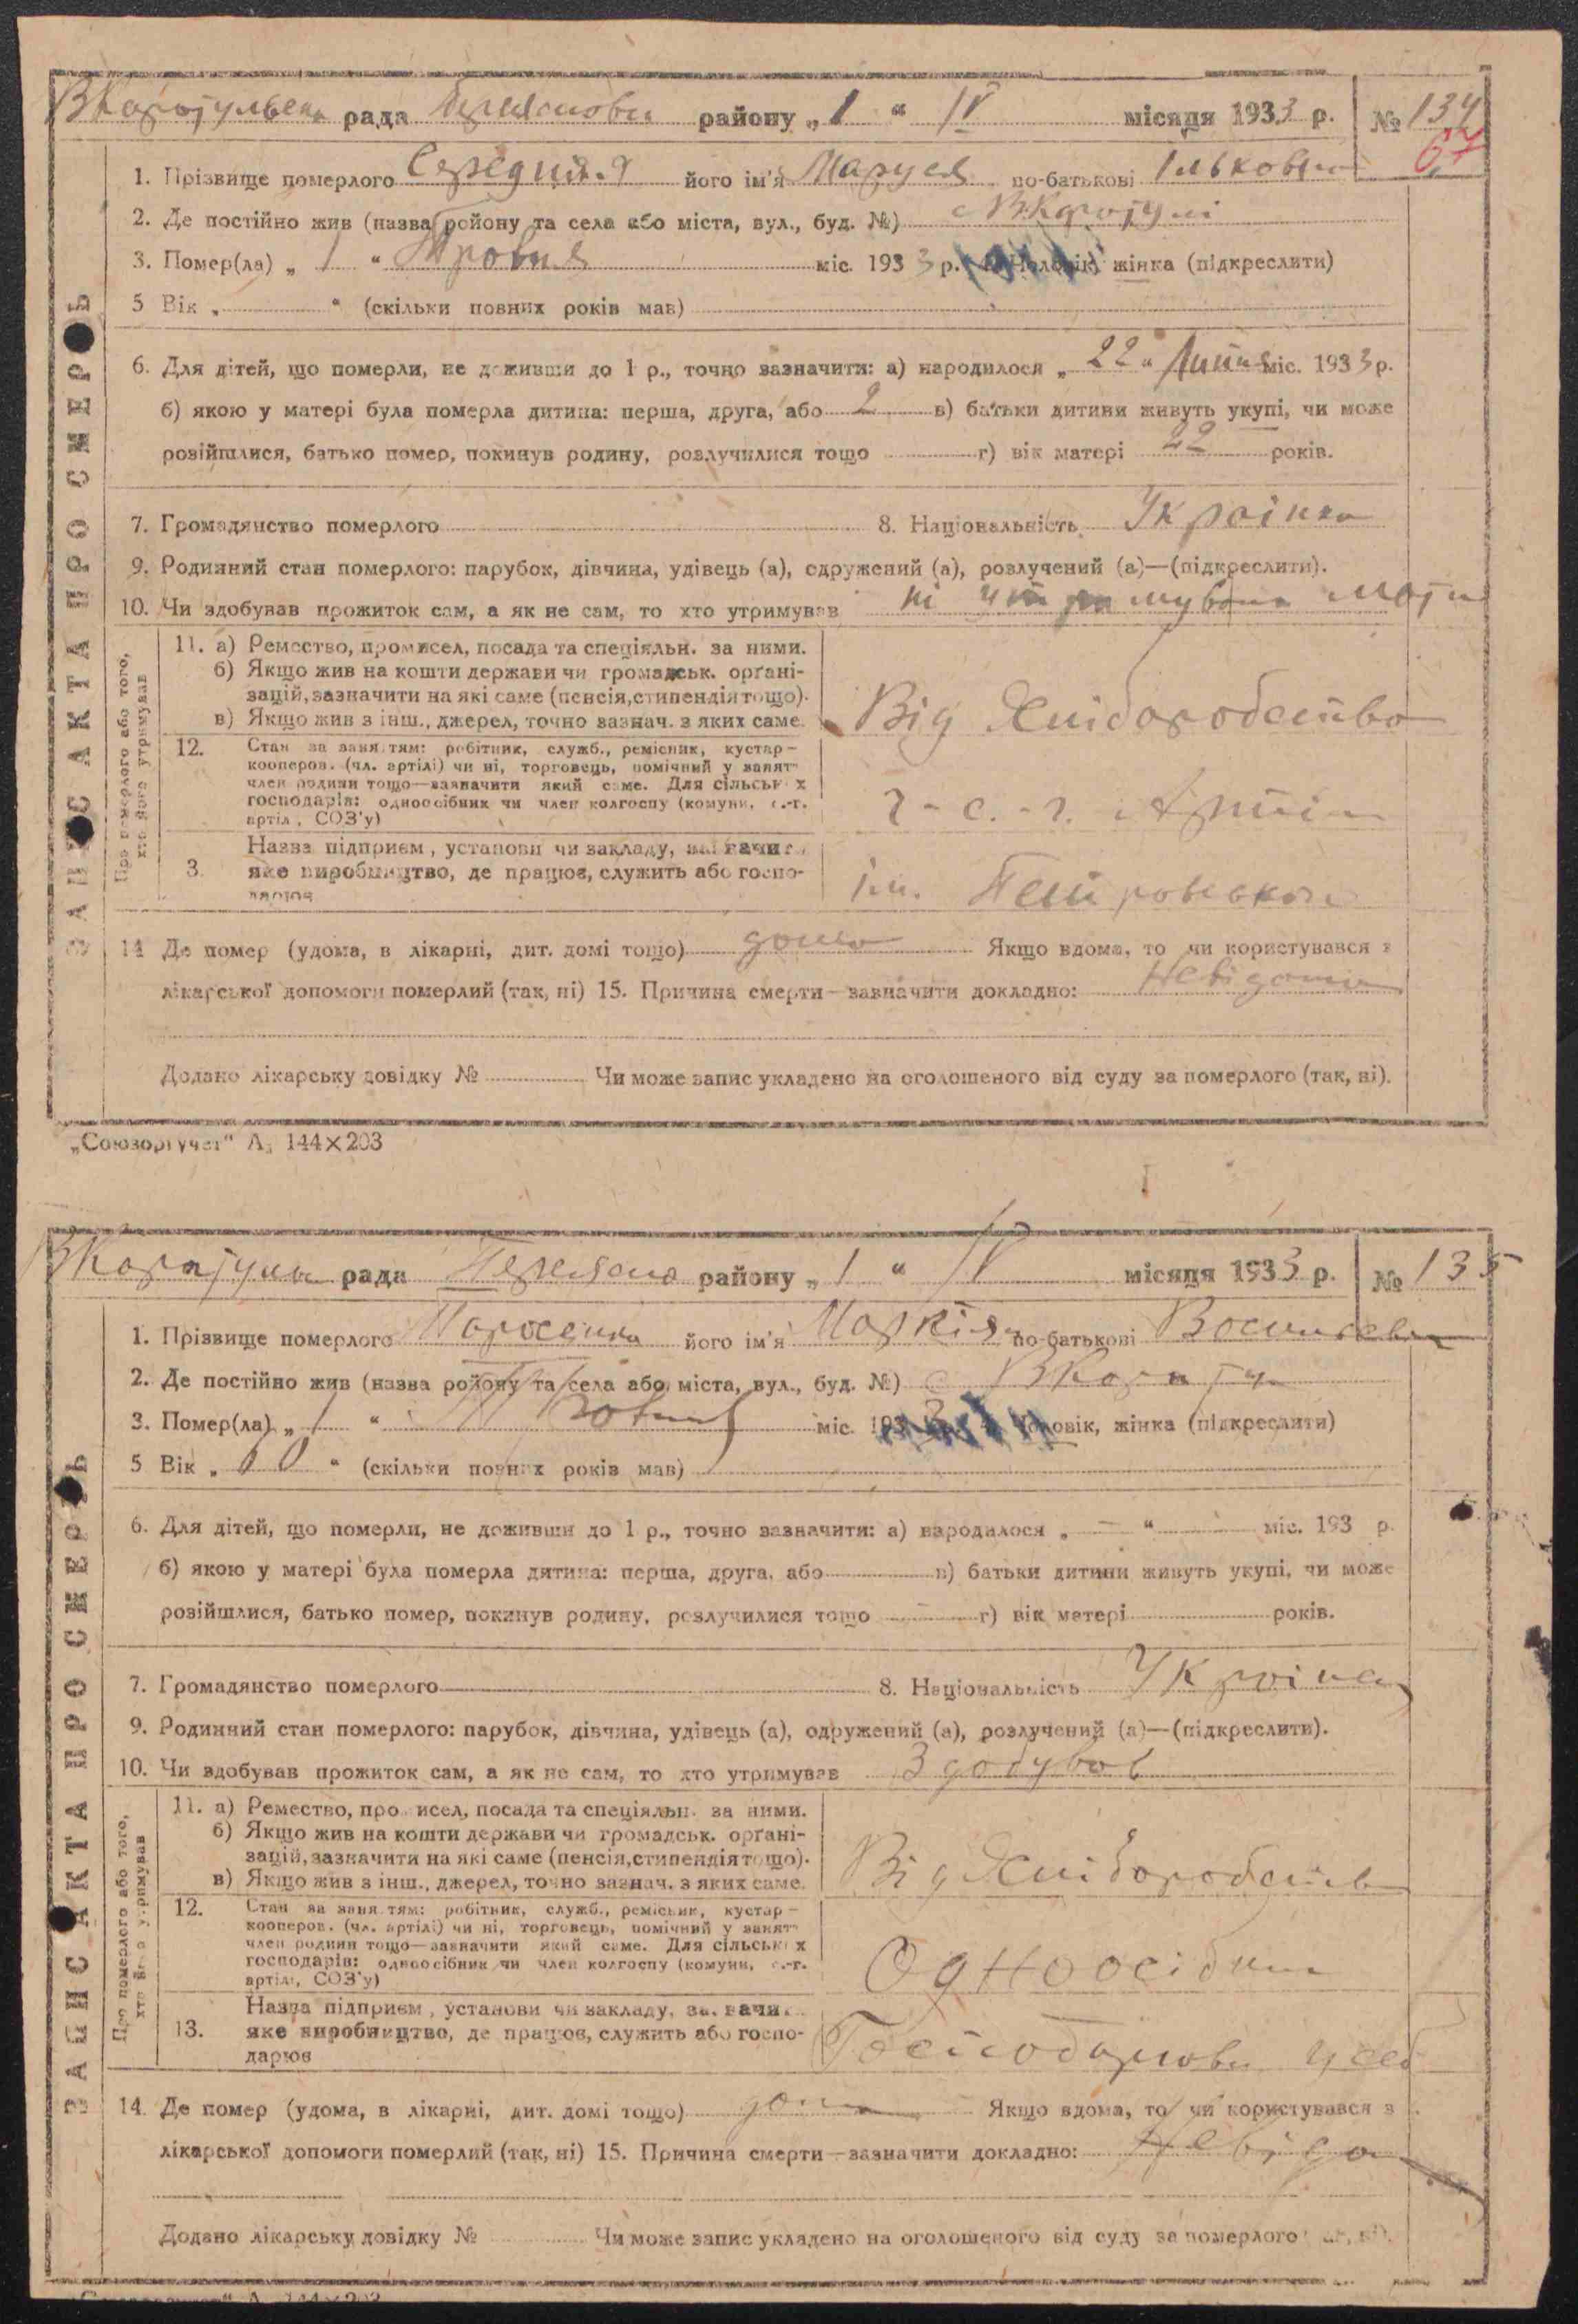 ЗАПИС АКТА ПРО СМЕРТЬ
рада району „1“ IV місяця 1933 р. № 134
67
1. Прізвище померлого його ім'я Маруся по-батькові Ільковна
2. Де постійно жив (назва району та села або міста, вул., буд. №) с В Каратулі
3. Помер(ла) „1“ міс. 193 3 р. Чоловік, жінка (підкреслити)
5 Вік „ “ (скільки повних років мав)
6. Для дітей, що померли, не доживши до 1 р., точно зазначити: а) народилося „22“ міс. 193 3 р.
б) якою у матері була померла дитина: перша, друга, або 2 в) батьки дитини живуть укупі, чи може
розійшлися, батько помер, покинув родину, розлучилися тощо г) вік матері 22 років.
7. Громадянство померлого 8. Національність Українка
9. Родинний стан померлого: парубок, дівчина, удівець (а), одружений (а), розлучений (а)—(підкреслити).
10. Чи здобував прожиток сам, а як не сам, то хто утримував ні утримувала мати
Про померлого або того, хто його утримував
11. а) Ремество, промисел, посада та спеціяльн. за ними.
б) Якщо жив на кошти держави чи громадськ. органі-
зацій, зазначити на які саме (пенсія, стипендія тощо).
в) Якщо жив з інш., джерел, точно зазнач. з яких саме.
Від Хліборобство
12. Стан за заняттям: робітник, служб., ремісник, кустар-
кооперов. (чл. артілі) чи ні, торговець, помічний у занятт
член родини тощо—зазначити який саме. Для сільськ х
господарів: одноосібник чи член колгоспу (комуни, с.-г.
артіл , СОЗ'у)
с.-г. Артіл
3. Назва підприєм , установи чи закладу, зазначит
яке виробництво, де працює, служить або госпо-
дарює
ім. Петровського
14 Де помер (удома, в лікарні, дит. домі тощо) дома Якщо вдома, то чи користувався з
лікарської допомоги померлий (так, ні) 15. Причина смерти—зазначити докладно: Невідома
Додано лікарську довідку № Чи може запис укладено на оголошеного від суду за померлого (так, ні).
„Союзоргучет“ А₅ 144×203
ЗАПИС АКТА ПРО СМЕРТЬ
рада району „1“ IV місяця 1933 р. № 135
1. Прізвище померлого його ім'я Маркіян по-батькові
2. Де постійно жив (назва району та села або міста, вул., буд. №) с В Карату
3. Помер(ла) „1“ міс. 193 Чоловік, жінка (підкреслити)
5 Вік „ “ (скільки повних років мав)
6. Для дітей, що померли, не доживши до 1 р., точно зазначити: а) народилося „ — “ міс. 193 р.
б) якою у матері була померла дитина: перша, друга, або в) батьки дитини живуть укупі, чи може
розійшлися, батько помер, покинув родину, розлучилися тощо г) вік матері років.
7. Громадянство померлого 8. Національність Українец
9. Родинний стан померлого: парубок, дівчина, удівець (а), одружений (а), розлучений (а)—(підкреслити).
10. Чи здобував прожиток сам, а як не сам, то хто утримував Здобував
Про померлого або того, хто його утримував
11. а) Ремество, про исел, посада та спеціяльн. за ними.
б) Якщо жив на кошти держави чи громадськ. органі-
зацій, зазначити на які саме (пенсія, стипендія тощо).
в) Якщо жив з інш., джерел, точно зазнач. з яких саме.
Від Хліборобств
12. Стан за заняттям: робітник, служб., ремісник, кустар-
кооперов. (чл. артілі) чи ні, торговець, помічний у занятт
член родини тощо—зазначити який саме. Для сільськ х
господарів: одноосібник чи член колгоспу (комуни, с.-г.
артіл , СОЗ'у)
Одноосібник
13. Назва підприєм , установи чи закладу, зазначит
яке виробництво, де працює, служить або госпо-
дарює
14. Де помер (удома, в лікарні, дит. домі тощо) дома Якщо вдома, то чи користувався з
лікарської допомоги померлий (так, ні) 15. Причина смерти—зазначити докладно: Невідома
Додано лікарську довідку № Чи може запис укладено на оголошеного від суду за померлого